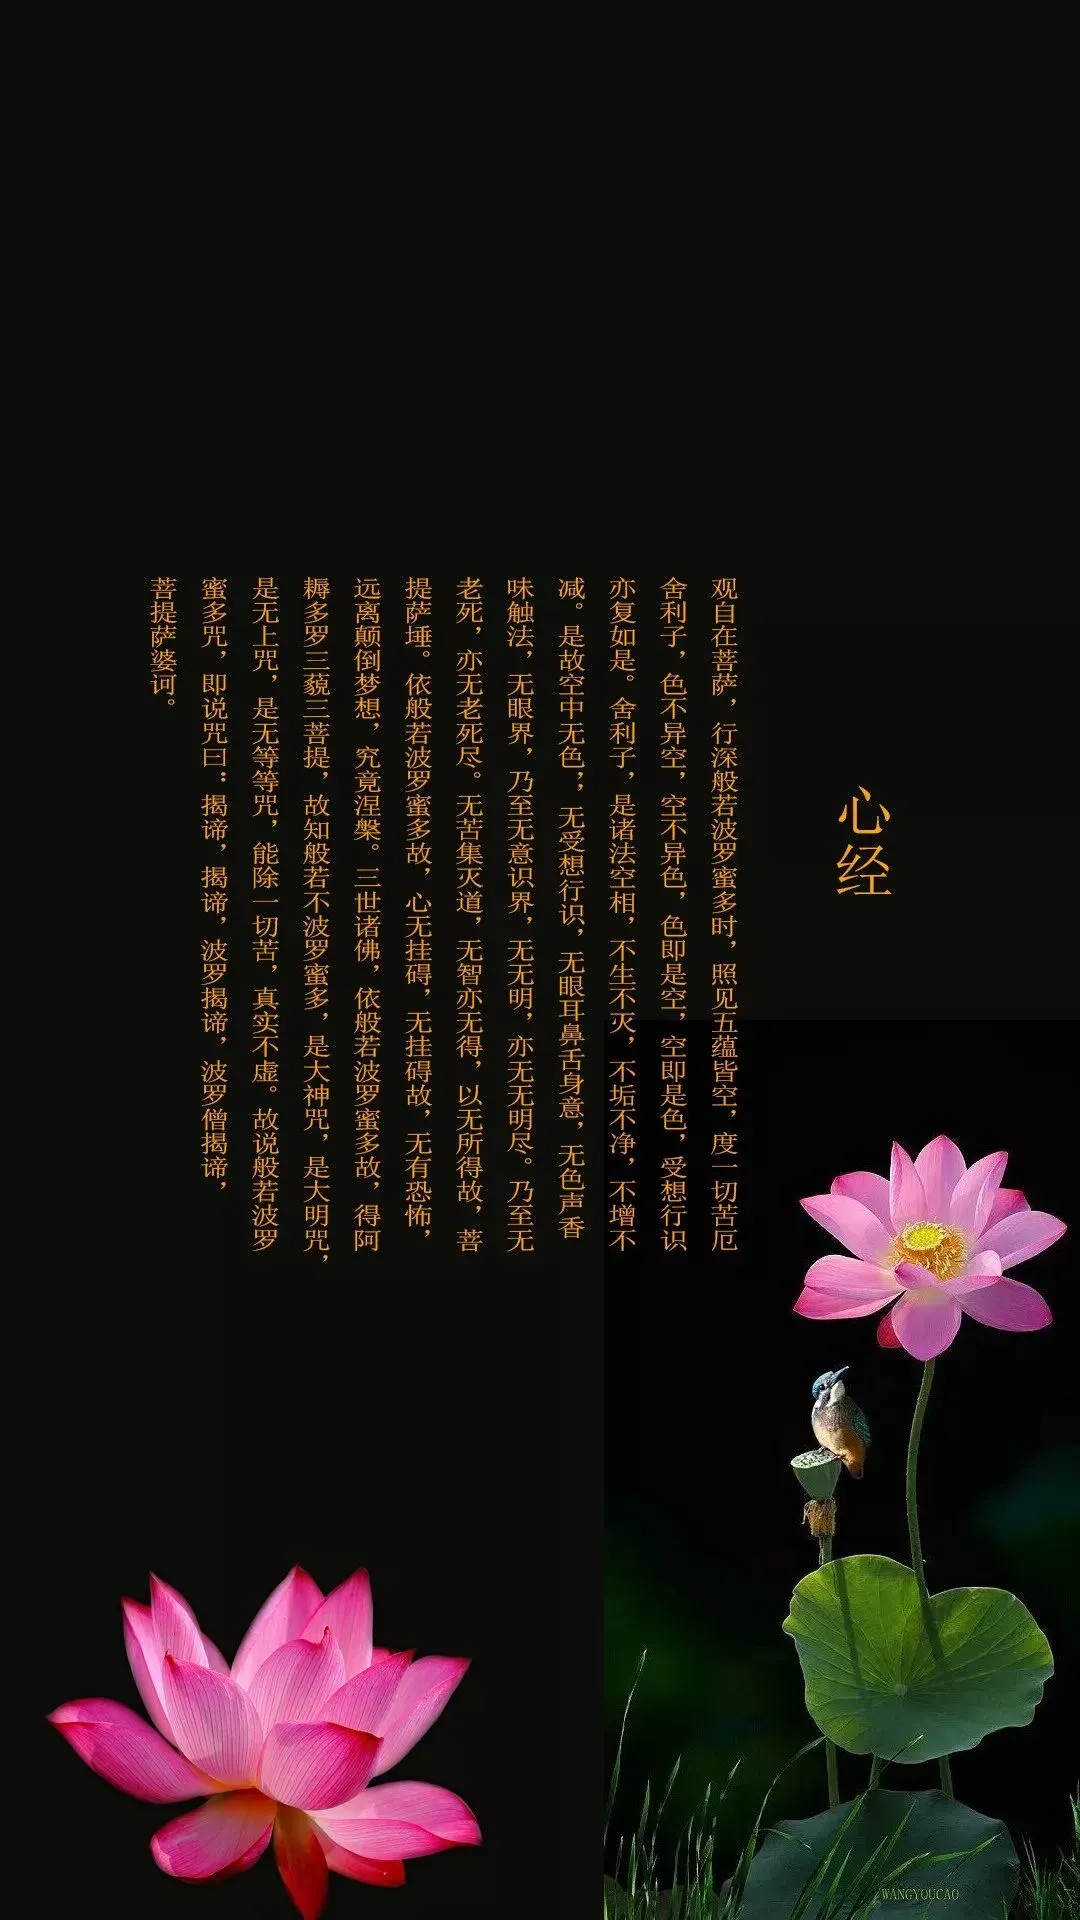 心经
观自在菩萨，行深般若波罗蜜多时，照见五蕴皆空，度一切苦厄
舍利子，色不异空，空不异色，色即是空，空即是色，受想行识
亦复如是。舍利子，是诸法空相，不生不灭，不垢不净，不增不
减。是故空中无色；，无受想行识，无眼耳鼻舌身意，无色声香
味触法，无眼界，乃至无意识界，无无明，亦无无明尽。乃至无
老死，亦无老死尽。无苦集灭道，无智亦无得，以无所得故，菩
提萨埵。依般若波罗蜜多故，心无挂碍，无挂碍故，无有恐怖，
远离颠倒梦想，究竟涅槃。三世诸佛，依般若波罗蜜多故，得阿
耨多罗三藐三菩提，故知般若不波罗蜜多，是大神咒，是大明咒，
是无上咒，是无等等咒，能除一切苦，真实不虚。故说般若波罗
蜜多咒，即说咒曰：揭谛，揭谛，波罗揭谛，波罗僧揭谛，
菩提萨婆诃。
WANGYOUCAO